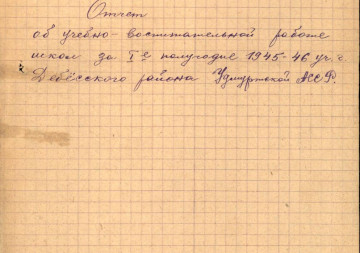 Отчет
об учебно-воспитательной работе
школ за Iе полугодие 1945-46 уч. г.
Дебёсского района Удмуртской АССР.